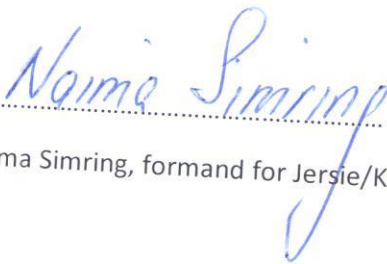 Naima Simring
ma Simring, formand for Jersie/K